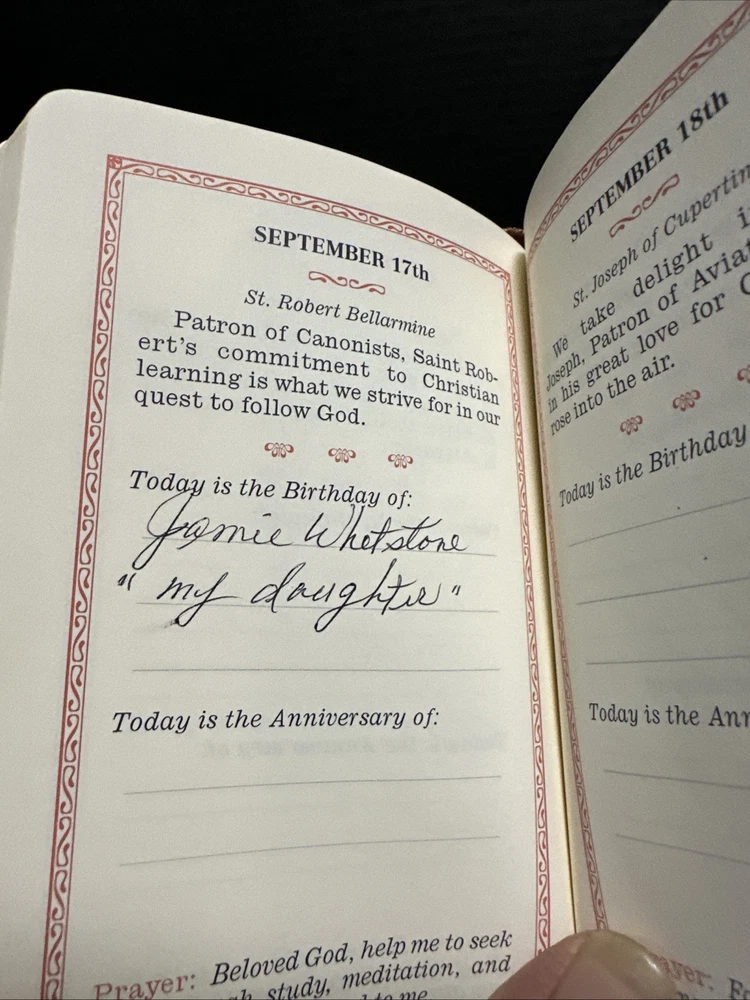 SEPTEMBER 17th
St. Robert Bellarmine
Patron of Canonists, Saint Rob-
ert's commitment to Christian
learning is what we strive for in our
quest to follow God.
Today is the Birthday of:
Jamie Whetstone
" my daughter "
Today is the Anniversary of:
Prayer: Beloved God, help me to seek
study, meditation, and
to me
SEPTEMBER 18th
St. Joseph of
We take delight
Joseph, Patron of
in his great love for
rose into the air.
Today is the Birthday
Today is the